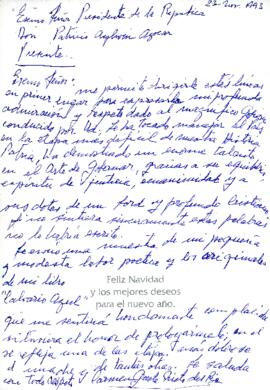 23-Nov. 1993
"Excmo Señor Presidente de la República
Don Patricio Aylwin Azócar
Presente.
Excmo Señor:
me permito dirigirle estas líneas
en primer lugar para expresarle mi profunda
admiración y respeto dado al magnífico
conducido por Ud. le ha tocado manejar el País
en la etapa más difícil de nuestra Historia
Patria, ha demostrado un enorme talento
en el Arte de Gobernar, gracias a su
espíritu de justicia, ecuanimidad y a
sus dotes de un
no sintiera sinceramente estas palabras
no lo habría escrito.
Le envío una muestra de mi pequeña
y modesta labor poética y los originales
de mi libro
Feliz Navidad
"Calvario Azul"
y los mejores deseos
para el nuevo año.
que me sentiría hondamente complacida
si tuviera el honor de prologarme, en él
se refleja una de las etapas más dolorosas
de tantas otras. Le saluda
con todo respeto Carmen